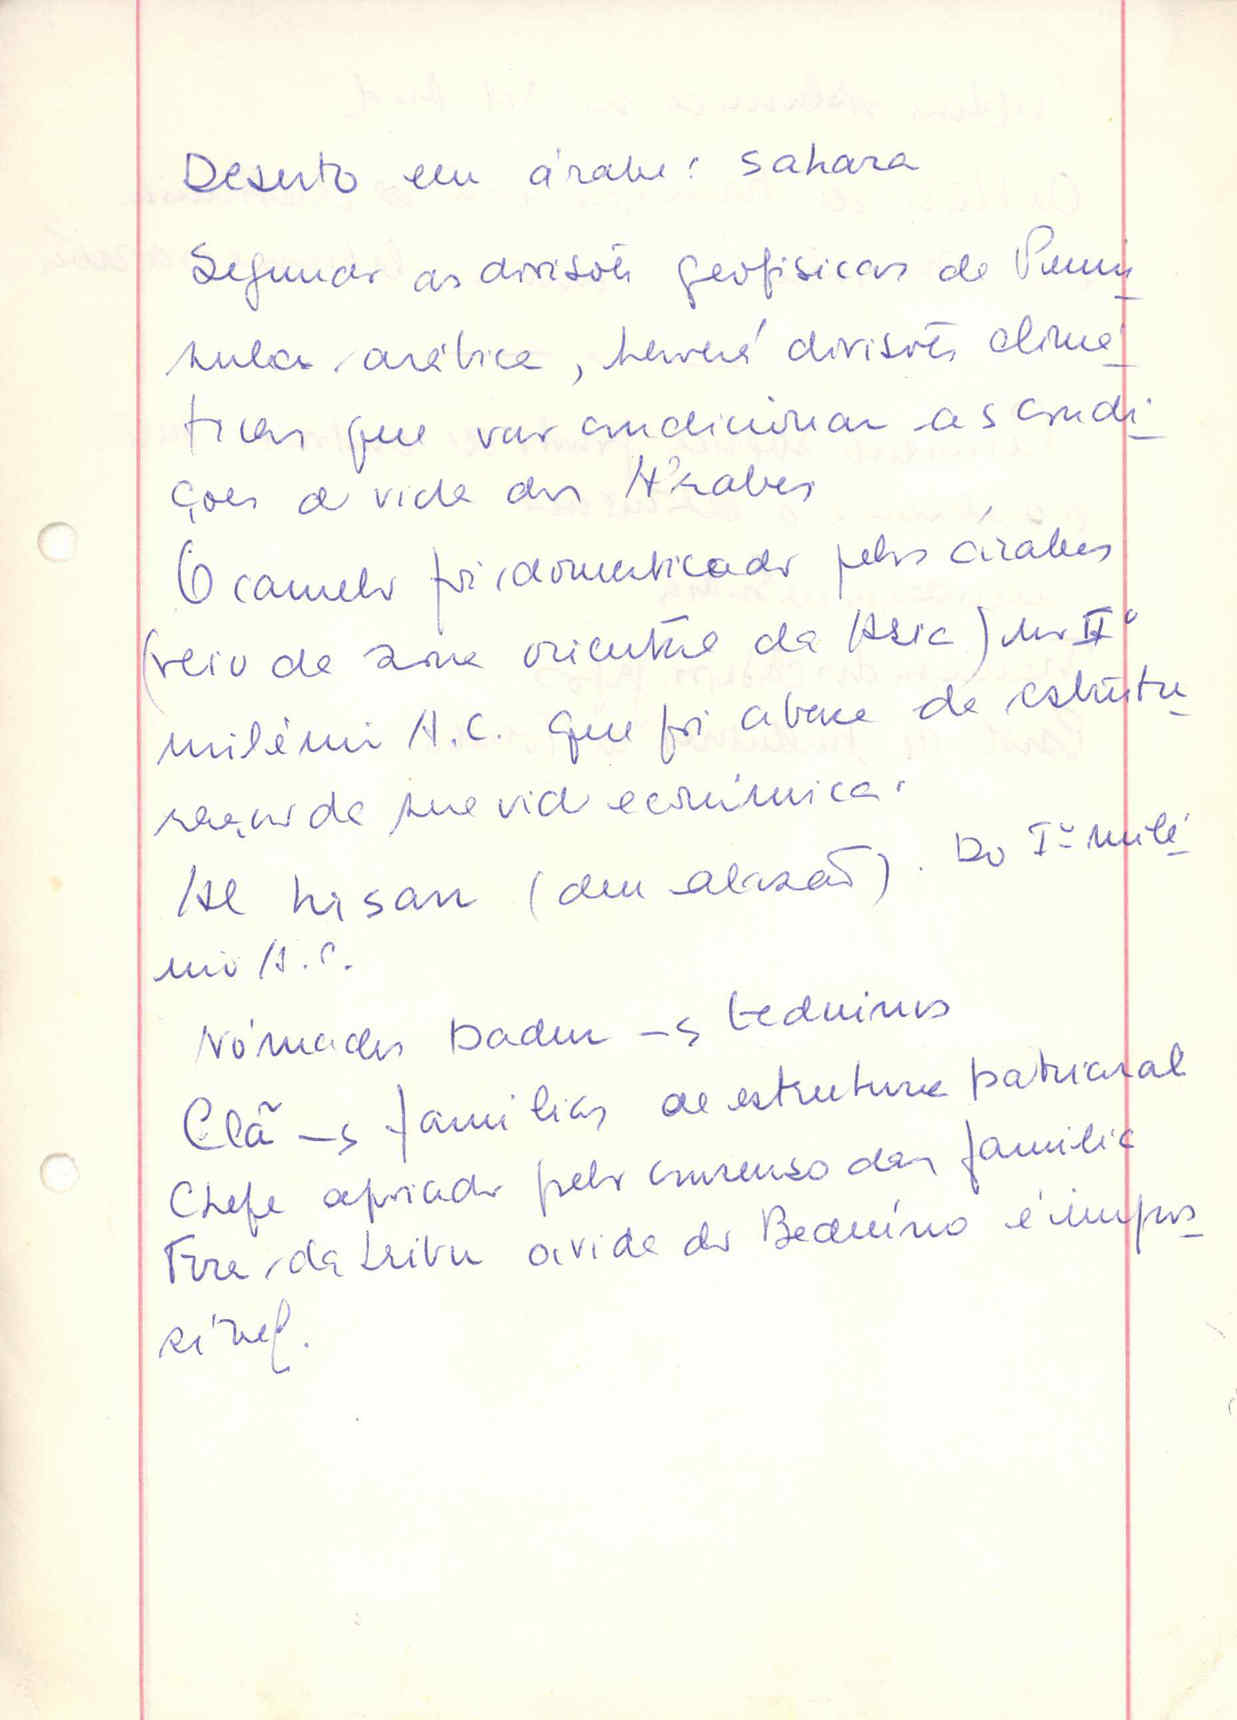 Deserto em árabe: sahara
Segundo as divisões geofisicas da Penin
sula arábica, haverá divisões climá
ticas que vão condicionar as condi
ções de vida dos Árabes
O camelo foi domesticado pelos árabes
(veio da zona oriental da Asia) no IIº
milénio A.C. que foi a base da estrutu
ração da sua vida económica.
Al hisan (deu alazão). Do Iº milé
nio A.C.
Nómades Badou → beduinos
Clã → familias de estrutura patriarcal
Chefe apoiado pelo consenso das familia
Fora da tribu a vida do Beduíno é impos
sível.